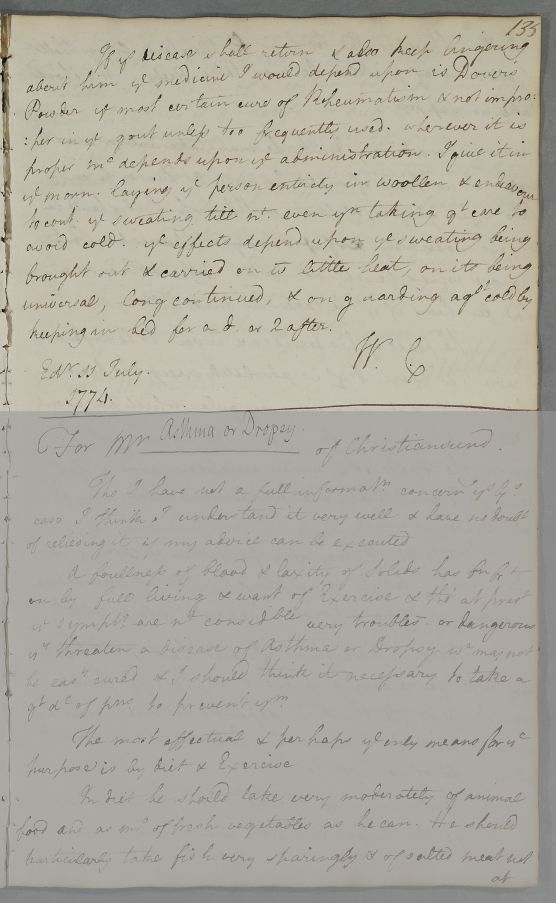 135
If ye disease shall return & also keep lingering
about him ye medicine I would depend upon is Dovers
Powder ye most certain cure of Rheumatism & not impro:
:per in ye gout unless too frequently used. wherever it is
proper mc depends upon ye administration. I give it in
ye morn. laying ye person entirely in woollen & endeavour
to cont. ye sweating till nt. even yn taking gt care to
avoid cold. ye effects depend upon ye sweating being
brought out & carried on to little heat, on its being
universal, long continued, & on guarding agst cold by
keeping in bed for a d. or 2 after.
W. C
Edr. 11 July.
1774.
For Mr Asthma or Dropsy. of Christiansund.
Tho I have not a full informatn. concerng ys
case I think I understand it very well & have no doubt
of relieving it if my advice can be executed
A foullness of blood & laxity of Solids has
on by full living & want of Exercise & tho' at prest
ye sympts. are nt considble very troubles. or dangerous
yy threaten a disease of Asthma or Dropsy wc may not
be easy. cured & I should think it necessary to take a
gt dl of pns. to prevent ym
The most effectual & perhaps ye only means for ys
purpose is by diet & Exercise
In diet he should take very moderately of animal
food and as mc. of fresh vegetables as he can. He should
particularly take fish very sparingly & of salted meat not
at